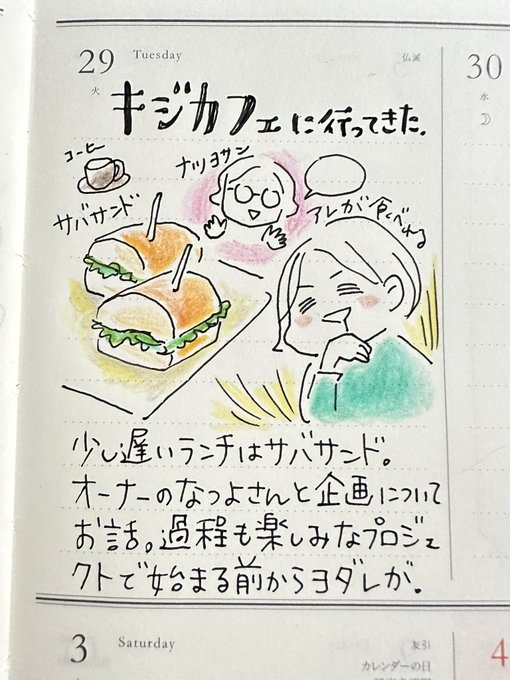 29 Tuesday
火
仏滅
30
水
キジカフェに行ってきた.
コーヒー
ナツヨサン
サバサンド
アレが食べれる
少し遅いランチはサバサンド。
オーナーのなつよさんと企画について
お話。過程も楽しみなプロジェ
クトで始まる前からヨダレが.
3 Saturday
友引
カレンダーの日
4